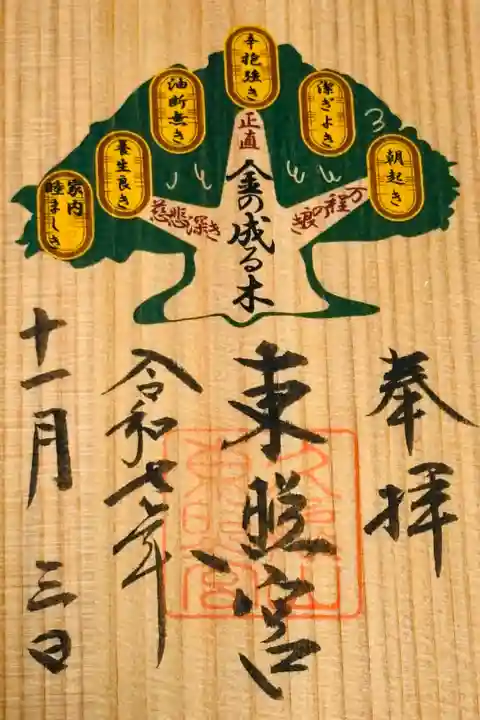 朝起き
潔ぎよき
辛抱強き
油断無き
養生良き
家内
睦ましき
万程の良き
正直
慈悲深き
金の成る木
奉拝
東照宮
令和七年
十一月三日